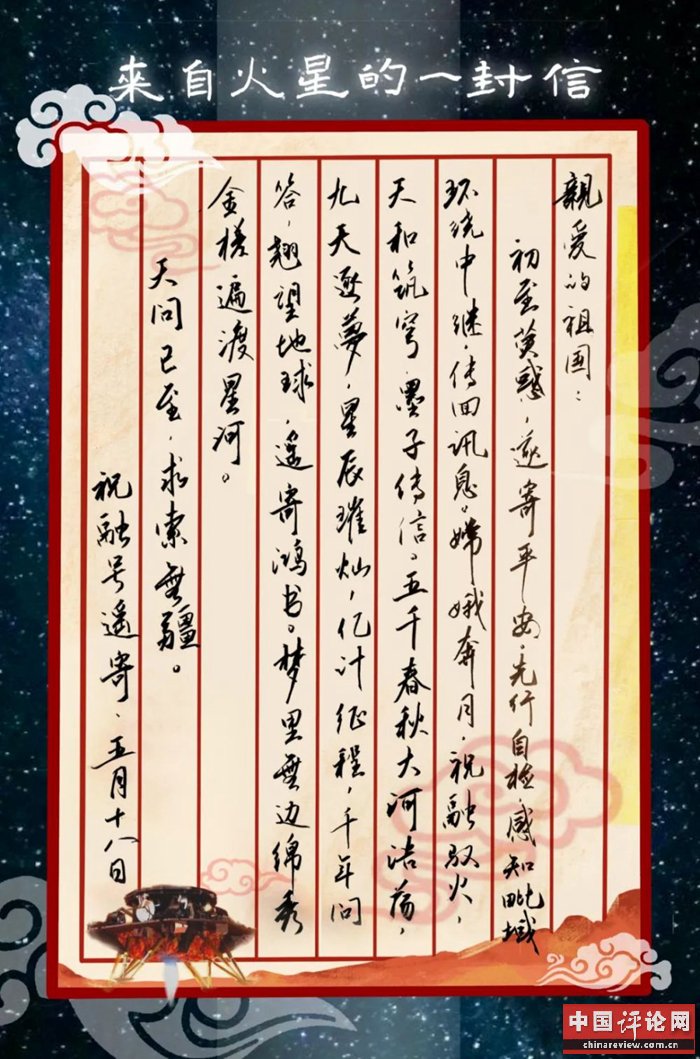 來自火星的一封信
親爱的祖国：
初至荧惑，遥寄平安。先行自检，感知毗域
环绕中继，传回讯息。嫦娥奔月，祝融驭火，
天和筑穹，墨子传信。五千春秋大河浩荡，
九天逐夢，星辰璀灿，亿计征程，千年问
答，翘望地球，遥寄鸿书。梦里無边绵秀
金槎遍渡星河。
天问已至，求索無疆。
祝融号遥寄，五月十八日
中国评论网
chinareview.com.cn